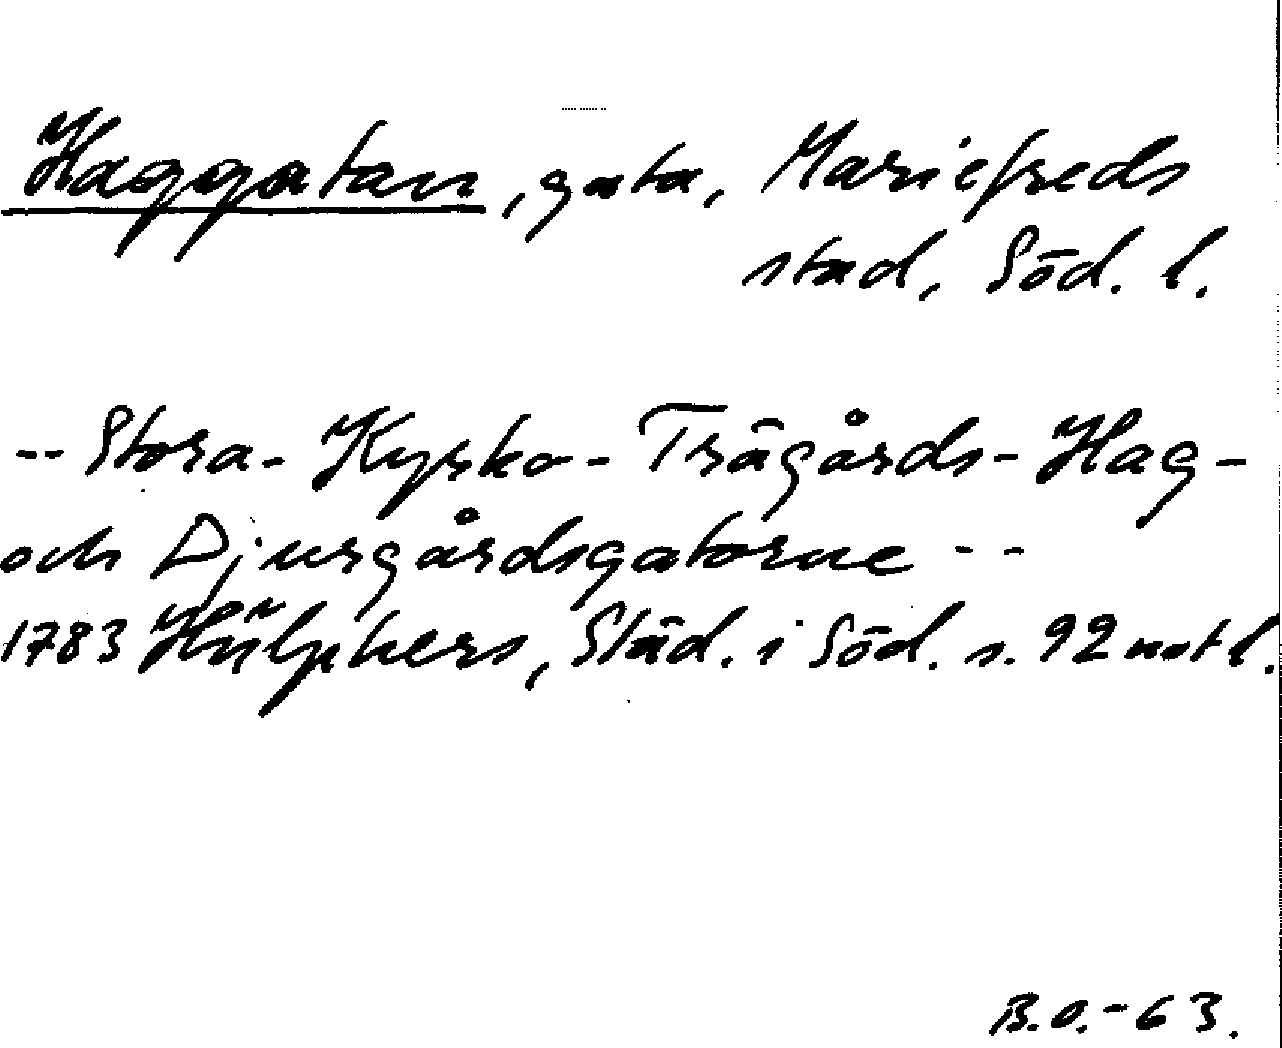 Haggatan, gata, Mariefreds
stad, Söd. l.
-- Stora- Kyrko- Trägårds- Hag-
och Djurgårdsgatorne --
1783 Hülphers, Städ. i Söd. s. 92 not l.
B.O.-63.